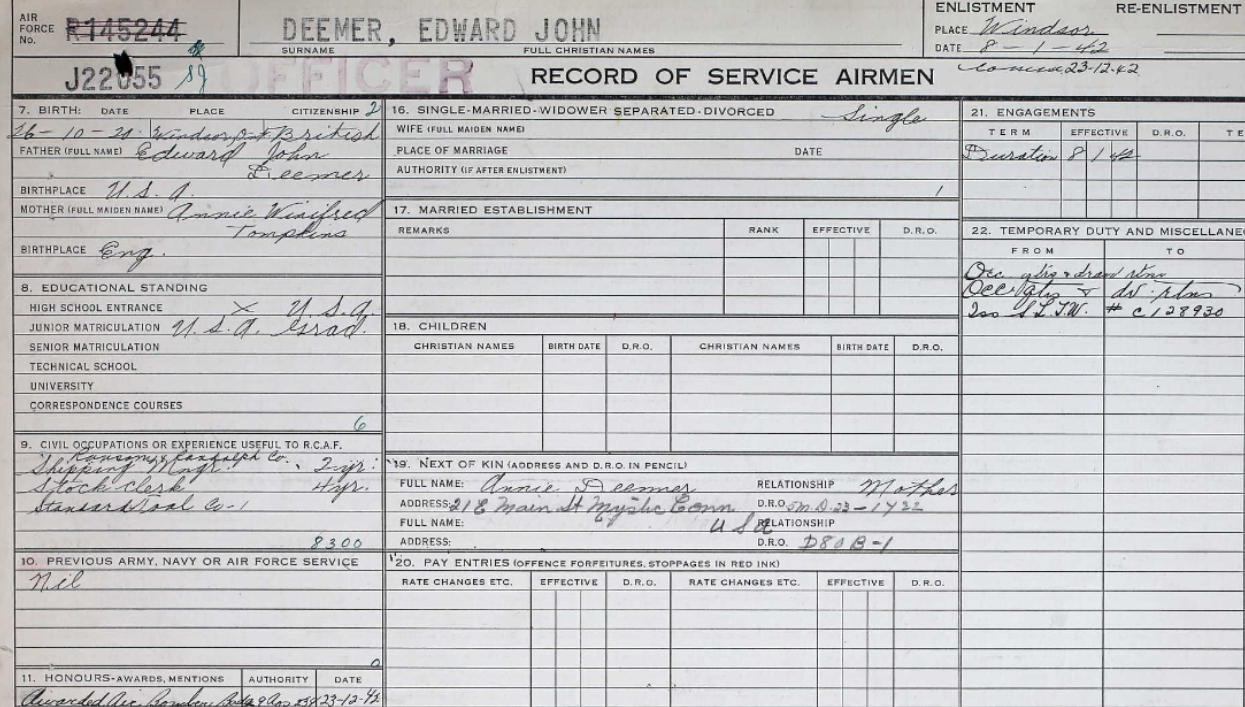 AIR FORCE No. R145244
DEEMER, EDWARD JOHN
SURNAME FULL CHRISTIAN NAMES
ENLISTMENT RE-ENLISTMENT
PLACE Windsor
DATE 8-1-42
J22 55 OFFICER
RECORD OF SERVICE AIRMEN
23-12-42
7. BIRTH: DATE PLACE CITIZENSHIP 2
26-10-20 Windsor, Ont British
FATHER (FULL NAME) Edward John
Deemer
BIRTHPLACE U.S.A.
MOTHER (FULL MAIDEN NAME) Annie Winifred
Tompkins
BIRTHPLACE Eng.
8. EDUCATIONAL STANDING
HIGH SCHOOL ENTRANCE X U.S.A.
JUNIOR MATRICULATION U.S.A. Grad.
SENIOR MATRICULATION
TECHNICAL SCHOOL
UNIVERSITY
CORRESPONDENCE COURSES
6
9. CIVIL OCCUPATIONS OR EXPERIENCE USEFUL TO R.C.A.F.
Ransom & Randolph Co.
Shipping Mngr. 2 yr.
Stock Clerk 4 yr.
Standard Co-1
8300
10. PREVIOUS ARMY, NAVY OR AIR FORCE SERVICE
Nil
0
11. HONOURS-AWARDS, MENTIONS AUTHORITY DATE
Awarded Air Bomber Badge 23-12-42
16. SINGLE-MARRIED-WIDOWER SEPARATED-DIVORCED Single
WIFE (FULL MAIDEN NAME)
PLACE OF MARRIAGE DATE
AUTHORITY (IF AFTER ENLISTMENT)
1
17. MARRIED ESTABLISHMENT
REMARKS RANK EFFECTIVE D.R.O.
18. CHILDREN
CHRISTIAN NAMES BIRTH DATE D.R.O. CHRISTIAN NAMES BIRTH DATE D.R.O.
19. NEXT OF KIN (ADDRESS AND D.R.O. IN PENCIL)
FULL NAME: Annie Deemer RELATIONSHIP Mother
ADDRESS: 21 E Main St Mystic Conn D.R.O.
FULL NAME: USA RELATIONSHIP
ADDRESS: D.R.O. D80B-1
20. PAY ENTRIES (OFFENCE FORFEITURES, STOPPAGES IN RED INK)
RATE CHANGES ETC. EFFECTIVE D.R.O. RATE CHANGES ETC. EFFECTIVE D.R.O.
21. ENGAGEMENTS
TERM EFFECTIVE D.R.O. TE
Duration 8 1 42
22. TEMPORARY DUTY AND MISCELLANE
FROM TO
# C128930